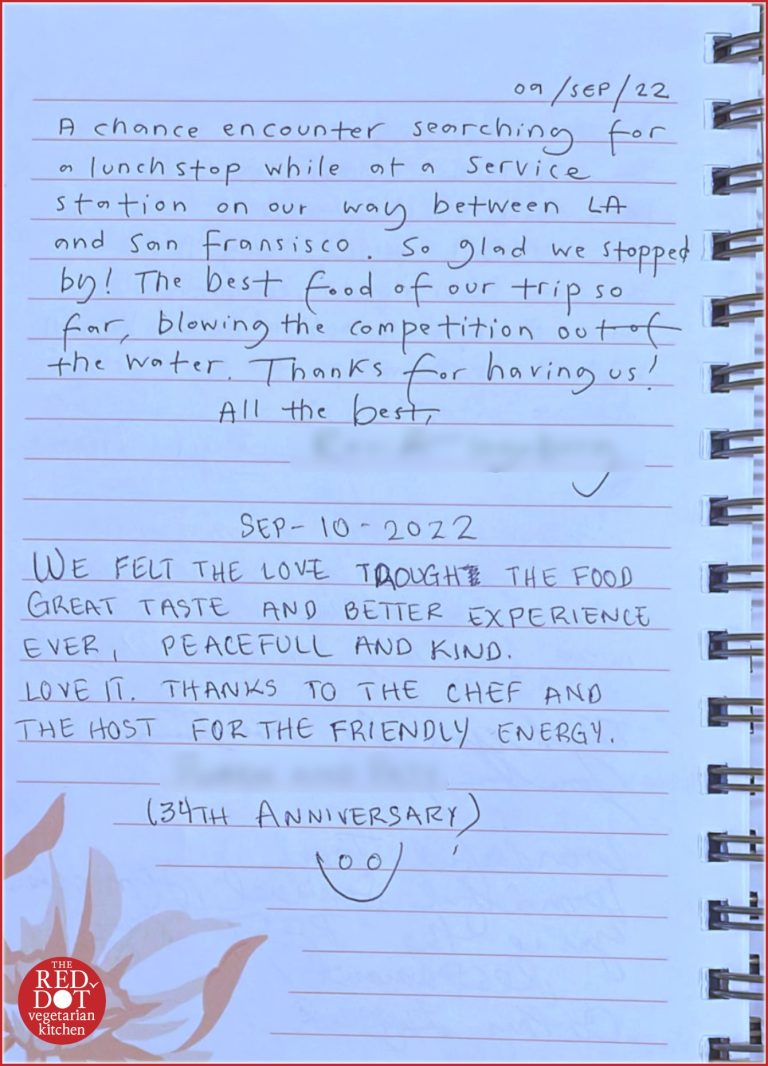 09/SEP/22
A chance encounter searching for
a lunch stop while at a service
station on our way between LA
and San Fransisco. So glad we stopped
by! The best food of our trip so
far, blowing the competition out of
the water. Thanks for having us!
All the best,
SEP-10-2022
WE FELT THE LOVE TROUGHT THE FOOD
GREAT TASTE AND BETTER EXPERIENCE
EVER, PEACEFULL AND KIND.
LOVE IT. THANKS TO THE CHEF AND
THE HOST FOR THE FRIENDLY ENERGY.
(34TH ANNIVERSARY)
THE
RED
DOT
vegetarian
kitchen